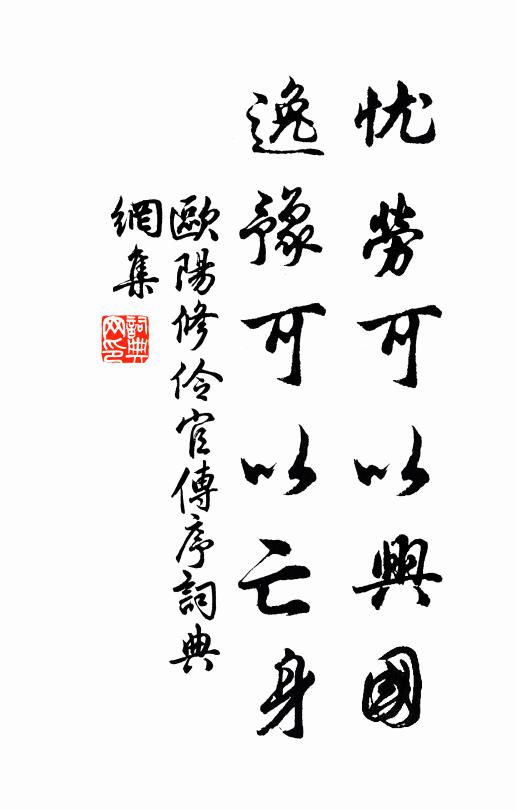 忧勞可以興國
逸豫可以亡身
歐陽修伶官傳序詞典
網集
詞典
网印